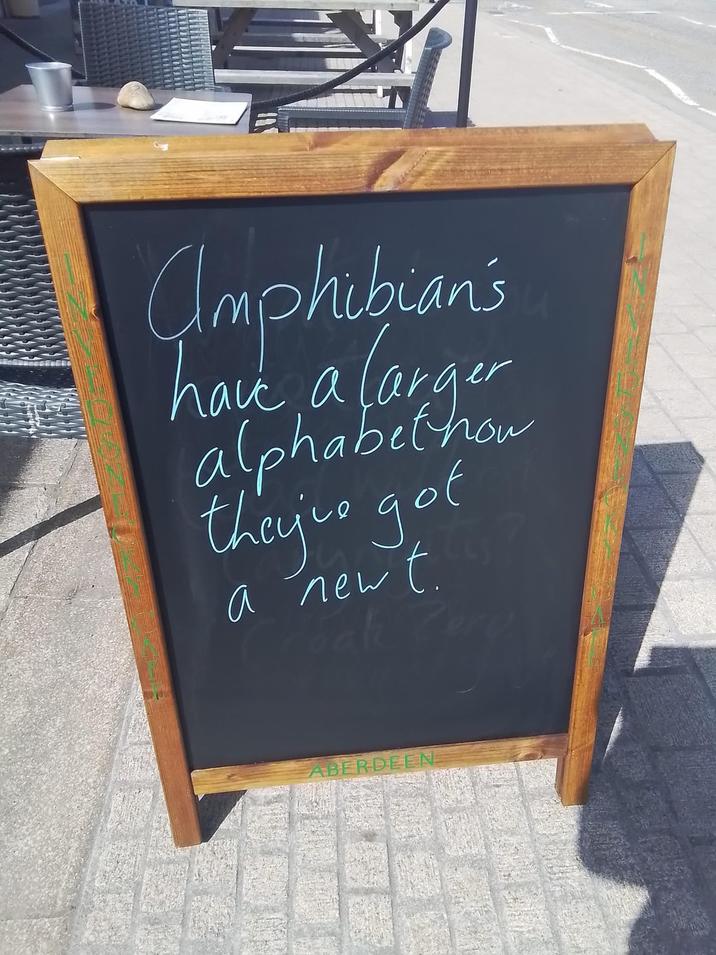 Amphibian's
have a larger
alphabet now
they've got
a new t.
INVERSNECKY CAFE
INVERSNECKY CAFE
ABERDEEN